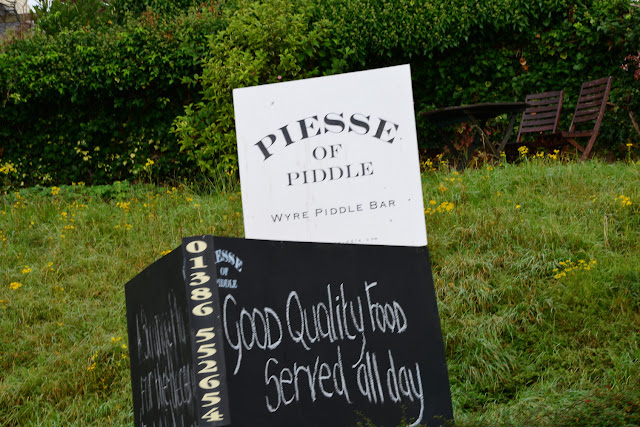 PIESSE
OF
PIDDLE
WYRE PIDDLE BAR
01386 552654
OF
PIDDLE
Good Quality Food
Served all day